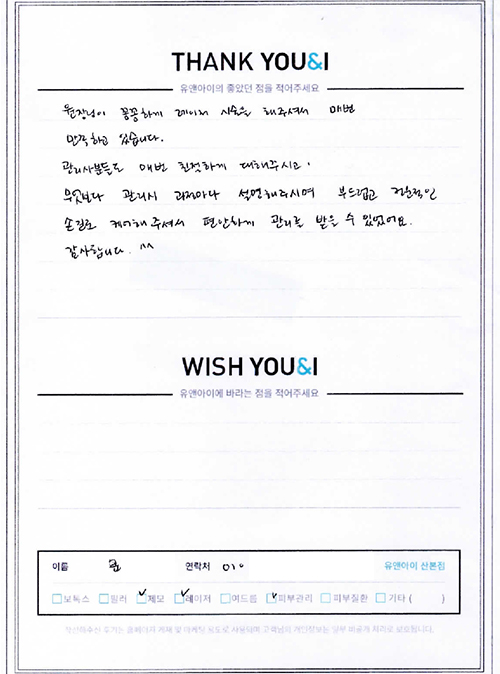 THANK YOU&I
유앤아이의 좋았던 점을 적어주세요
원장님이 꼼꼼하게 레이저 시술을 해주셔서 매번
만족하고 있습니다.
관리사분들도 매번 친절하게 대해주시고,
무엇보다 관리시 과정마다 설명해주시며 부드럽고 전문적인
손길로 케어해주셔서 편안하게 관리를 받을 수 있었어요.
감사합니다. ^^
WISH YOU&I
유앤아이에 바라는 점을 적어주세요
이름 연락처 010 유앤아이 산본점
보톡스 필러 제모 레이저 여드름 피부관리 피부질환 기타 ( )
후기는 홈페이지 게재 및 마케팅 용도로 사용되며 고객님의 개인정보는 일부 비공개 처리로 보호됩니다.